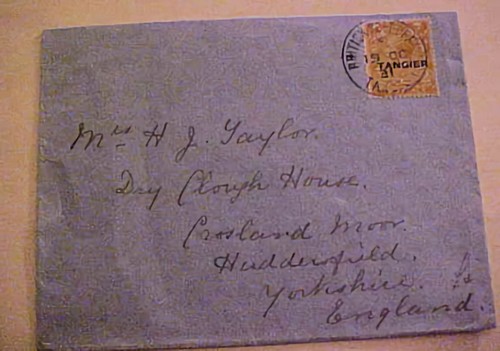 BRITISH
19 OC
31
TANGIER
Mrs H J. Taylor.
Dry Clough House.
Crosland Moor.
Huddersfield.
Yorkshire.
England.